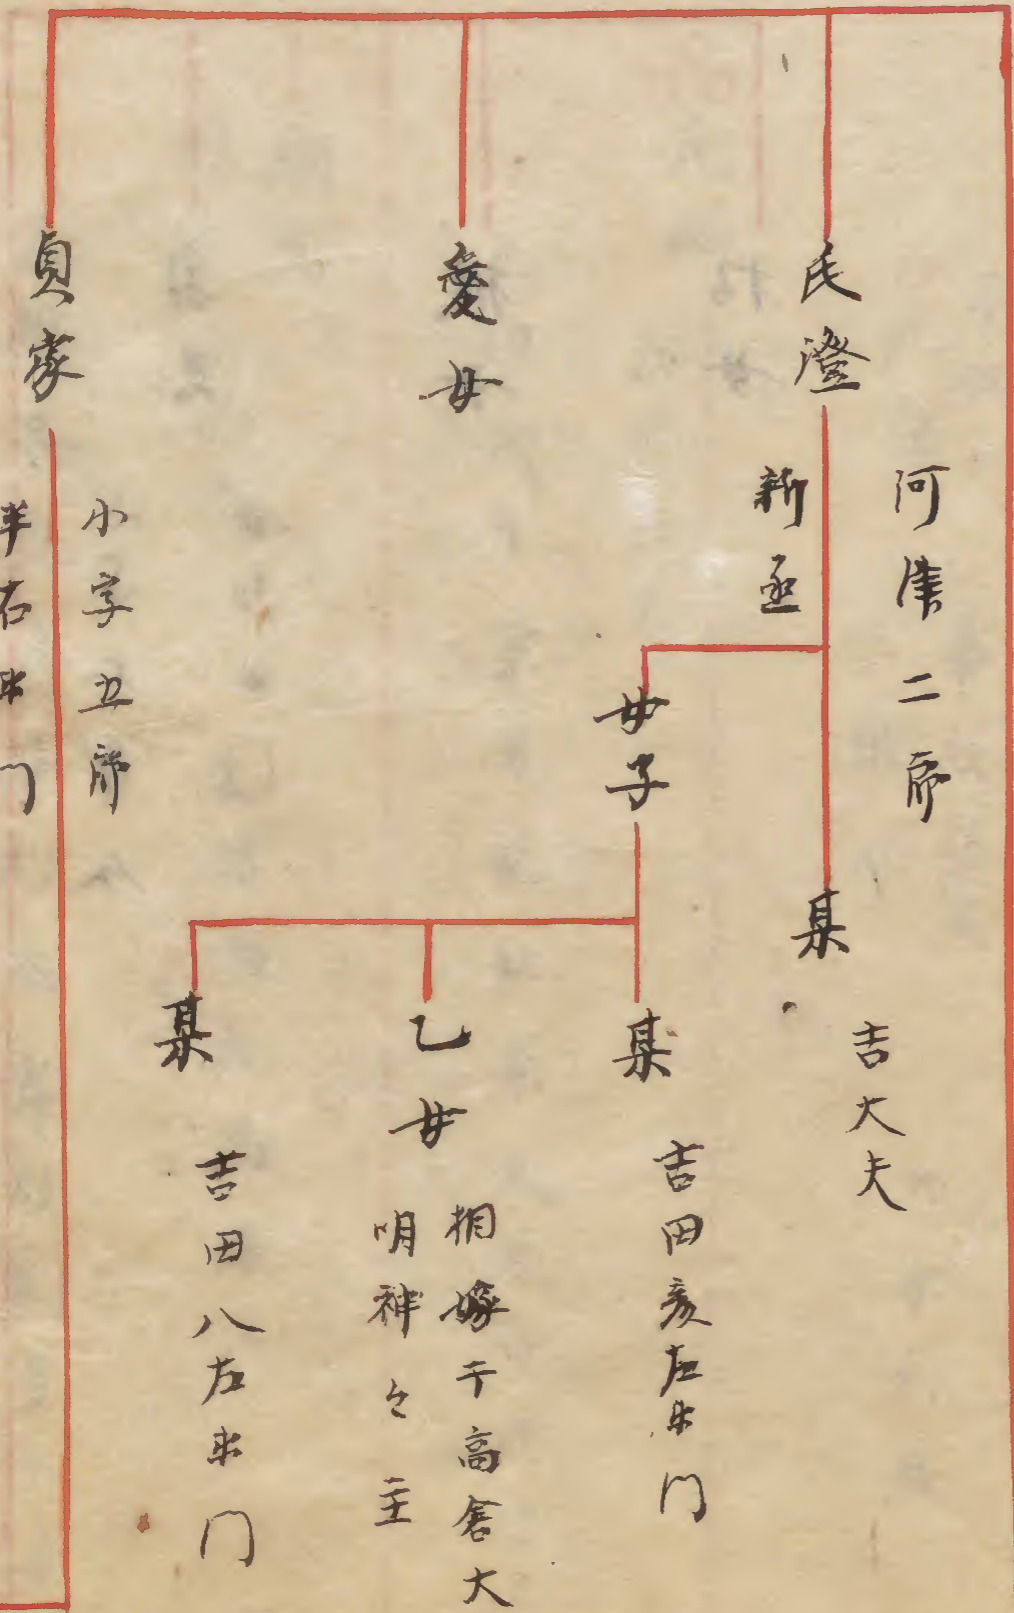 氏澄
阿津二郎
新丞
某
吉大夫
女子
某
吉田彦左衛門
乙女
相嫁于高倉大
明神々主
某
吉田八左衛門
愛女
貞家
小字五郎
半右衛門